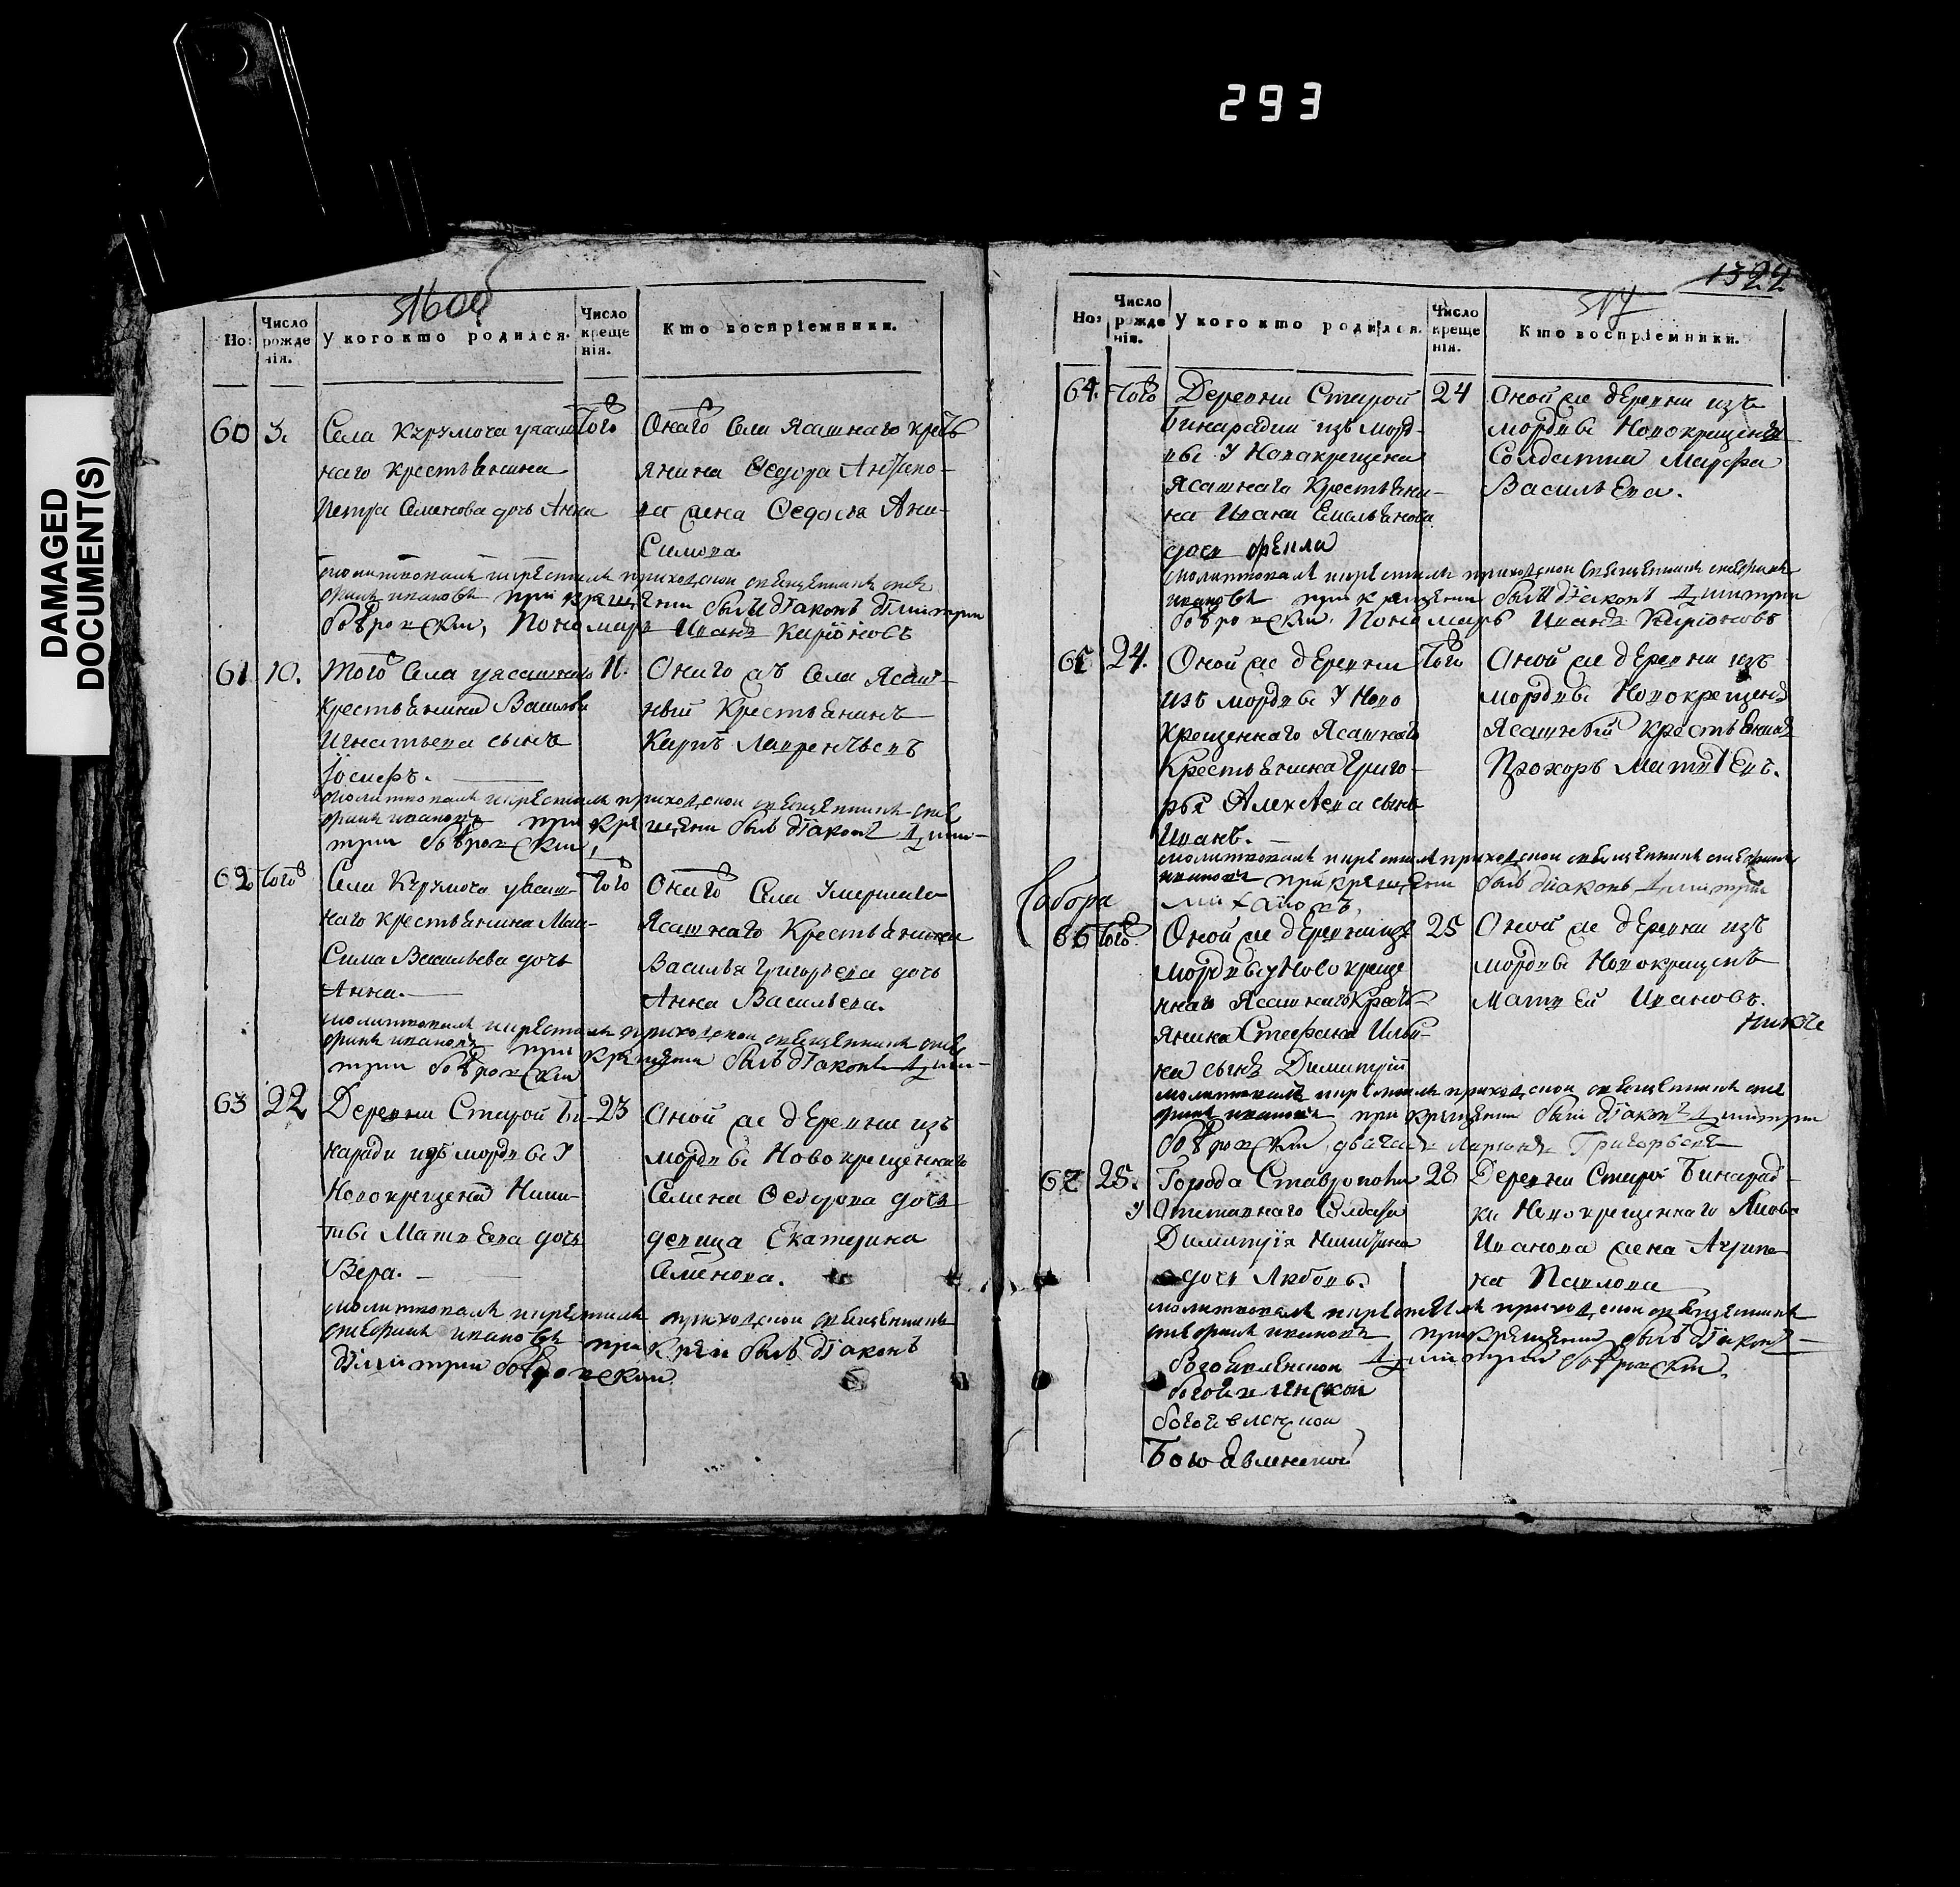 293
DAMAGED
DOCUMENT(S)
Но:
Число рожде нія.
У кого кто родился.
Число креще нія.
Кто воспріемники.
60
3.
Села Курумоча у ясаш
наго крестьянина
Петра Семенова дочь Анна
Того
Онаго Села Ясашнаго кресть
янина Ѳедора Антипо-
ва жена Ѳедосья Ани-
Симова
молитвовалъ и крестилъ приходской священникъ сте
фанъ ивановъ при крещении были діаконъ димитри
бобровски, Пономарь Иванъ Каріоновъ
61
10.
Того Села у ясашнаго
крестьянина Василья
Игнатьева сынъ
Іосифъ.
11.
Онаго жъ Села Ясаш-
ный Крестьянинъ
Карпъ Лаврентьевъ
молитвовалъ и крестилъ приходской священникъ сте
фанъ ивановъ при крещени былъ діаконъ дими-
три бобровски,
62
Того
Села Курумоча у ясаш-
наго крестьянина Мак-
Сима Васильева дочь
Анна.
Того
Онаго Села Умершаго
Ясашнаго Крестьянина
Василья Григорьева дочь
Анна Васильева.
молитвовалъ и крестилъ приходской священникъ сте
фанъ ивановъ при крещени былъ діаконъ дими-
три бобровски
63
22
Деревни Старой Би-
наради изъ мордвы У
Новокрещена Ники-
ты Матвеева дочь
Вера.
23
Оной же деревни изъ
мордвы Новокрещеннаго
Семена Ѳедорова дочь
девица Екатерина
Семенова.
молитвовалъ и крестилъ приходской священникъ
стефанъ ивановъ при крещ былъ діаконъ
димитри бобровски
1322
517
Но:
Число рожде нія.
У кого кто родился.
Число креще нія.
Кто воспріемники.
64.
Того
Деревни Старой
Бинарадки изъ морд-
вы У Новакрещена
Ясашнаго Крестьяни-
на Ивана Емельянова
дочь
24
Оной же деревни изъ
мордвы Новокрещена
Солдатка Марфа
Васильева.
молитвовалъ и крестилъ приходской священникъ стефанъ
ивановъ при крещении были діаконъ димитри
бобровски, Пономарь Иванъ Каріоновъ
65
24.
Оной же деревни
изъ мордвы У Ново
крещеннаго Ясашнаго
Крестьянина Григо-
рья Алексеева сынъ
Иванъ.
Того
Оной же деревни изъ
мордвы Новокрещенъ
Ясашный крестьянинъ
Прохоръ Матвеевъ.
молитвовалъ и крестилъ приходской священникъ стефанъ
ивановъ при крещени былъ діаконъ димитри
Собора
66
Того
Оной же деревни изъ
мордвы у Новокреще
ннаго Ясашнаго Кресть-
янина Стефана Ильи-
на сынъ Димитрій
25
Оной же деревни изъ
мордвы Новокрещенъ
Матвей Ивановъ.
молитвовалъ и крестилъ приходской священникъ сте
фанъ ивановъ при крещении были діаконъ димитри
бобровски дьячекъ Ларионъ Григорьевъ
67
25.
Города Ставрополя
У Штатнаго Солдата
Димитрія Никитина
дочь Любовь.
28
Деревни Старой Бинарад-
ки Новокрещеннаго Якова
Иванова жена Агрипе
на Павлова
молитвовалъ и крестилъ приходской священникъ
стефанъ ивановъ при крещении былъ діаконъ
димитрий бобровски.
богоявленской
богоявленской
богоявленской
Богоявленской